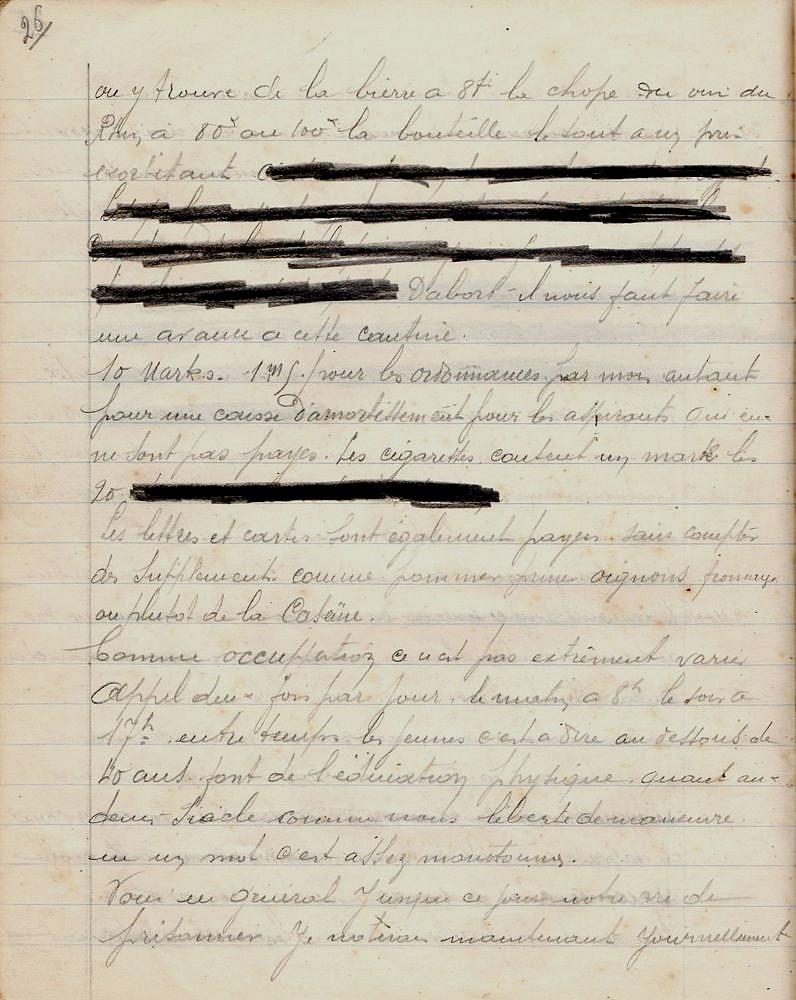 26/
on y trouve de la bierre a 8fi la chope du vin du
Rhin a 80x ou 100x la bouteille le tout a un prix
exorbitant
Dabort il nous faut faire
une avance a cette cantine.
10 Marks. 1m5 pour les ordonnances par mois autant
pour une caisse d'amortissement pour les aspirants qui en
ne sont pas payes. Les cigarettes coutent un mark les
20
Les lettres et cartes sont également payer. sans compter
des supplements comme pommes prunes oignons fromage
ou plutot de la Caséine.
Comme occupation ce n'est pas extrêment varier
Appel deux fois par jour. le matin a 8h le soir a
17h. entre temps les jeunes c'est a dire au dessous de
40 ans font de l'éducation physique. quant au
demi-Siècle comme nous liberte de maneuvre.
en un mot c'est assez monotonne.
Voici en general Jusque ce jour notre vie de
prisonnier. Je noterai maintenant Journellement